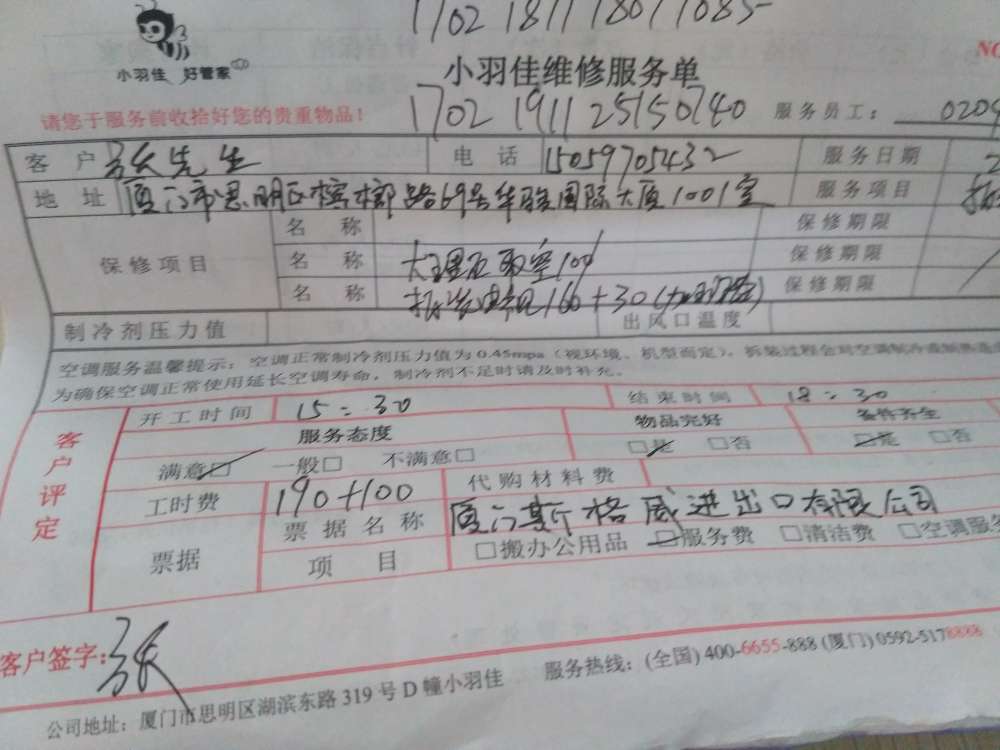 1702 1811 18011085
小羽佳 好管家
NO
小羽佳维修服务单
请您于服务前收拾好您的贵重物品!
1702 1911 25150740
服务员工: 0209
客户 张先生 电话 15059705432 服务日期 2
地址 厦门市思明区槟榔路69号华骏国际大厦1001室 服务项目
保修项目
名称 保修期限
名称 大理石取空100 保修期限
名称 160+30 保修期限
制冷剂压力值 出风口温度
空调服务温馨提示:空调正常制冷剂压力值为0.45mpa(视环境、机型而定),拆装过程会对空调制冷或制热造成
为确保空调正常使用延长空调寿命,制冷剂不足时请及时补充。
客户评定
开工时间 15:30 结束时间 18:30
服务态度 物品完好
满意☑ 一般□ 不满意□ ☑是 □否 ☑是 □否
工时费 190+100 代购材料费
票据 票据名称 厦门斯格威进出口有限公司
项目 □搬办公用品 ☑服务费 □清洁费 □空调服务
客户签字: 张
公司地址:厦门市思明区湖滨东路319号D幢小羽佳 服务热线:(全国)400-6655-888(厦门)0592-5178888